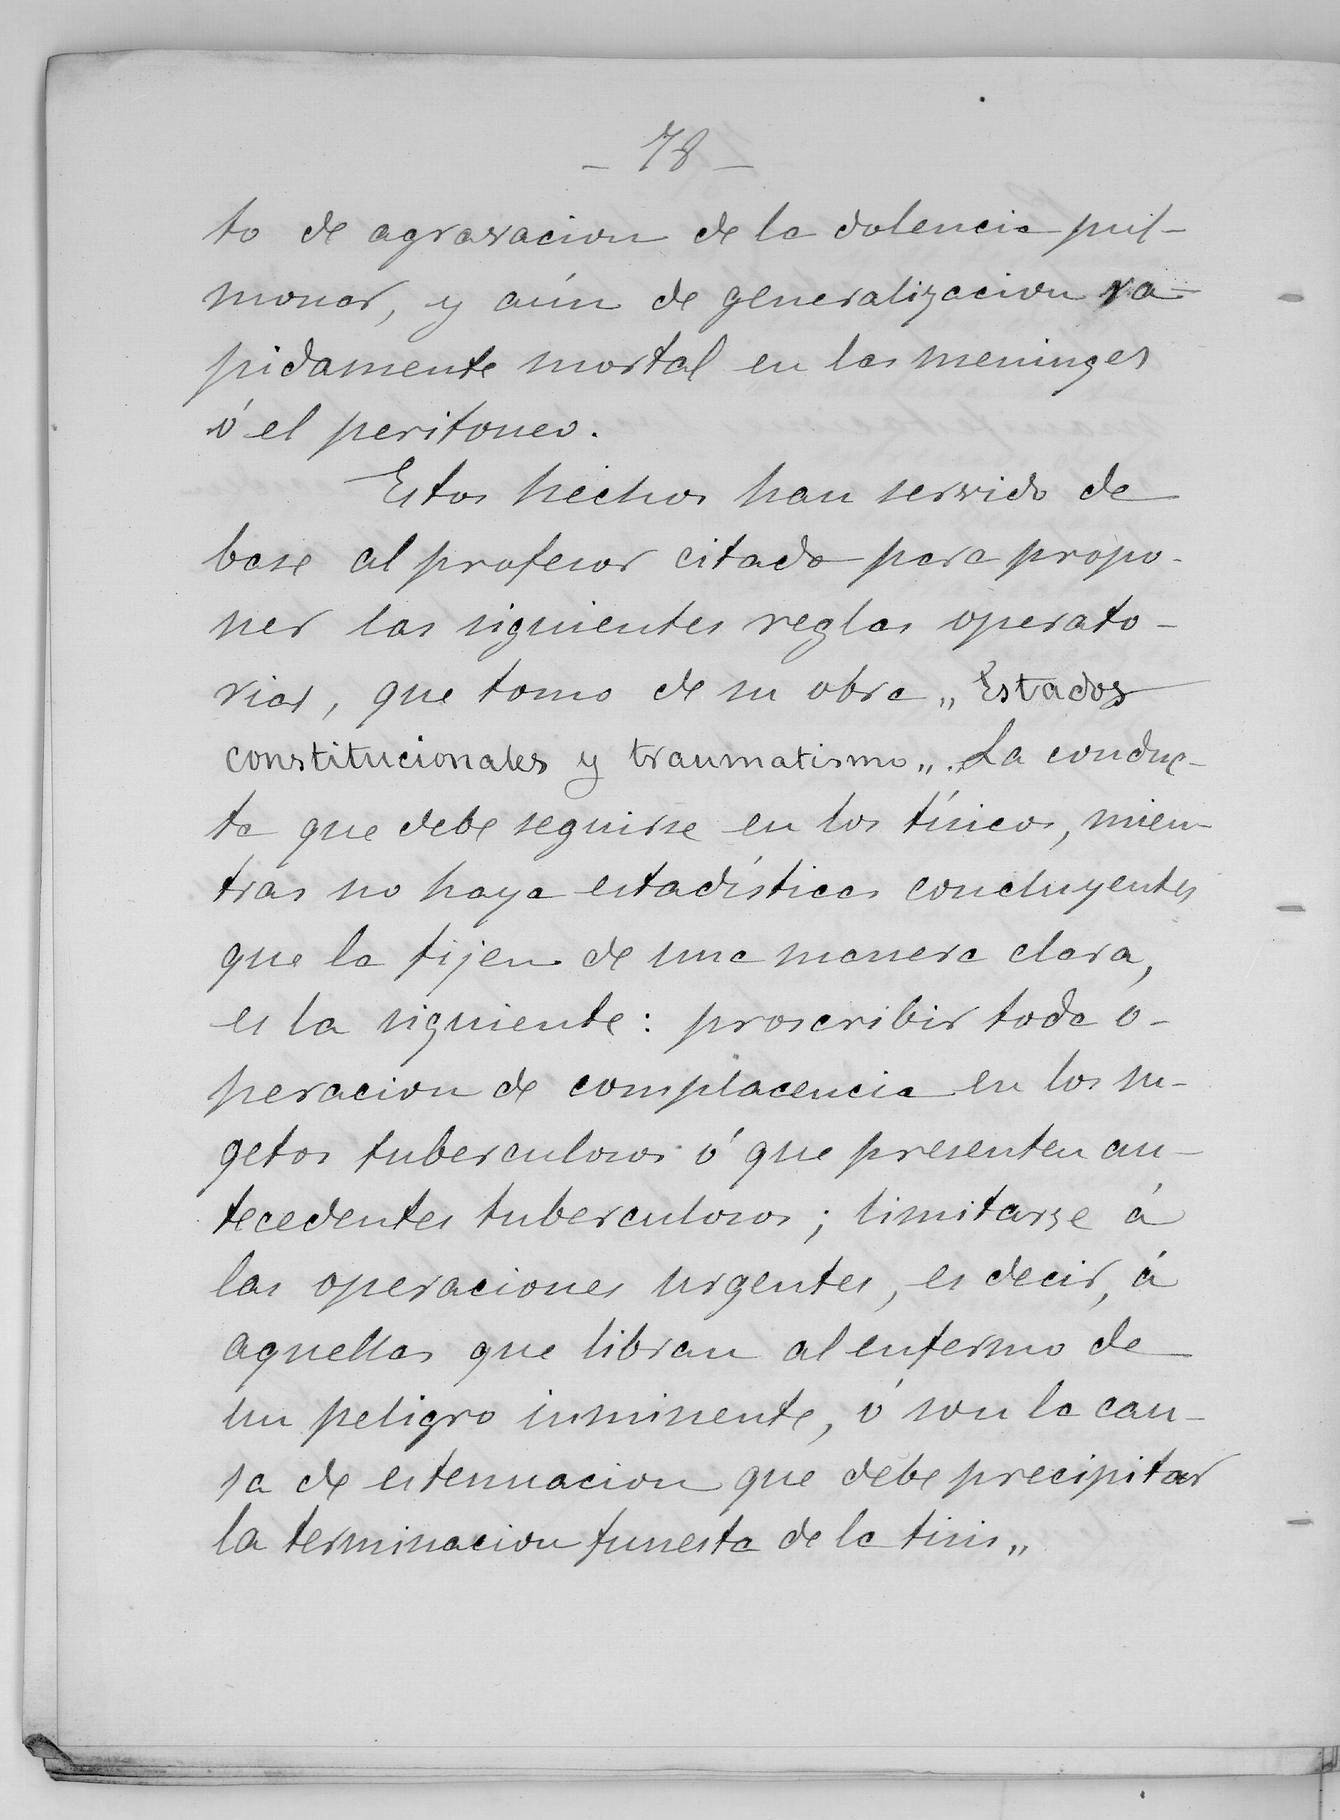 - 78 -
to de agravacion de la dolencia pul-
monar, y aún de generalizacion ra-
pidamente mortal en las meninges
ó el peritoneo.
Estos hechos han servido de
base al profesor citado para propo-
ner las siguientes reglas operato-
rias, que tomo de su obra „ Estados
constitucionales y traumatismo „. „La conduc-
ta que debe seguirse en los tísicos, mien-
tras no haya estadísticas concluyentes
que la fijen de una manera clara,
es la siguiente: proscribir toda o-
peracion de complacencia en los su-
getos tuberculosos ó que presenten an-
tecedentes tuberculosos; limitarse á
las operaciones urgentes, es decir, á
aquellas que libran al enfermo de
un peligro inminente, ó son la cau-
sa de estenuacion que debe precipitar
la terminacion funesta de la tisis „